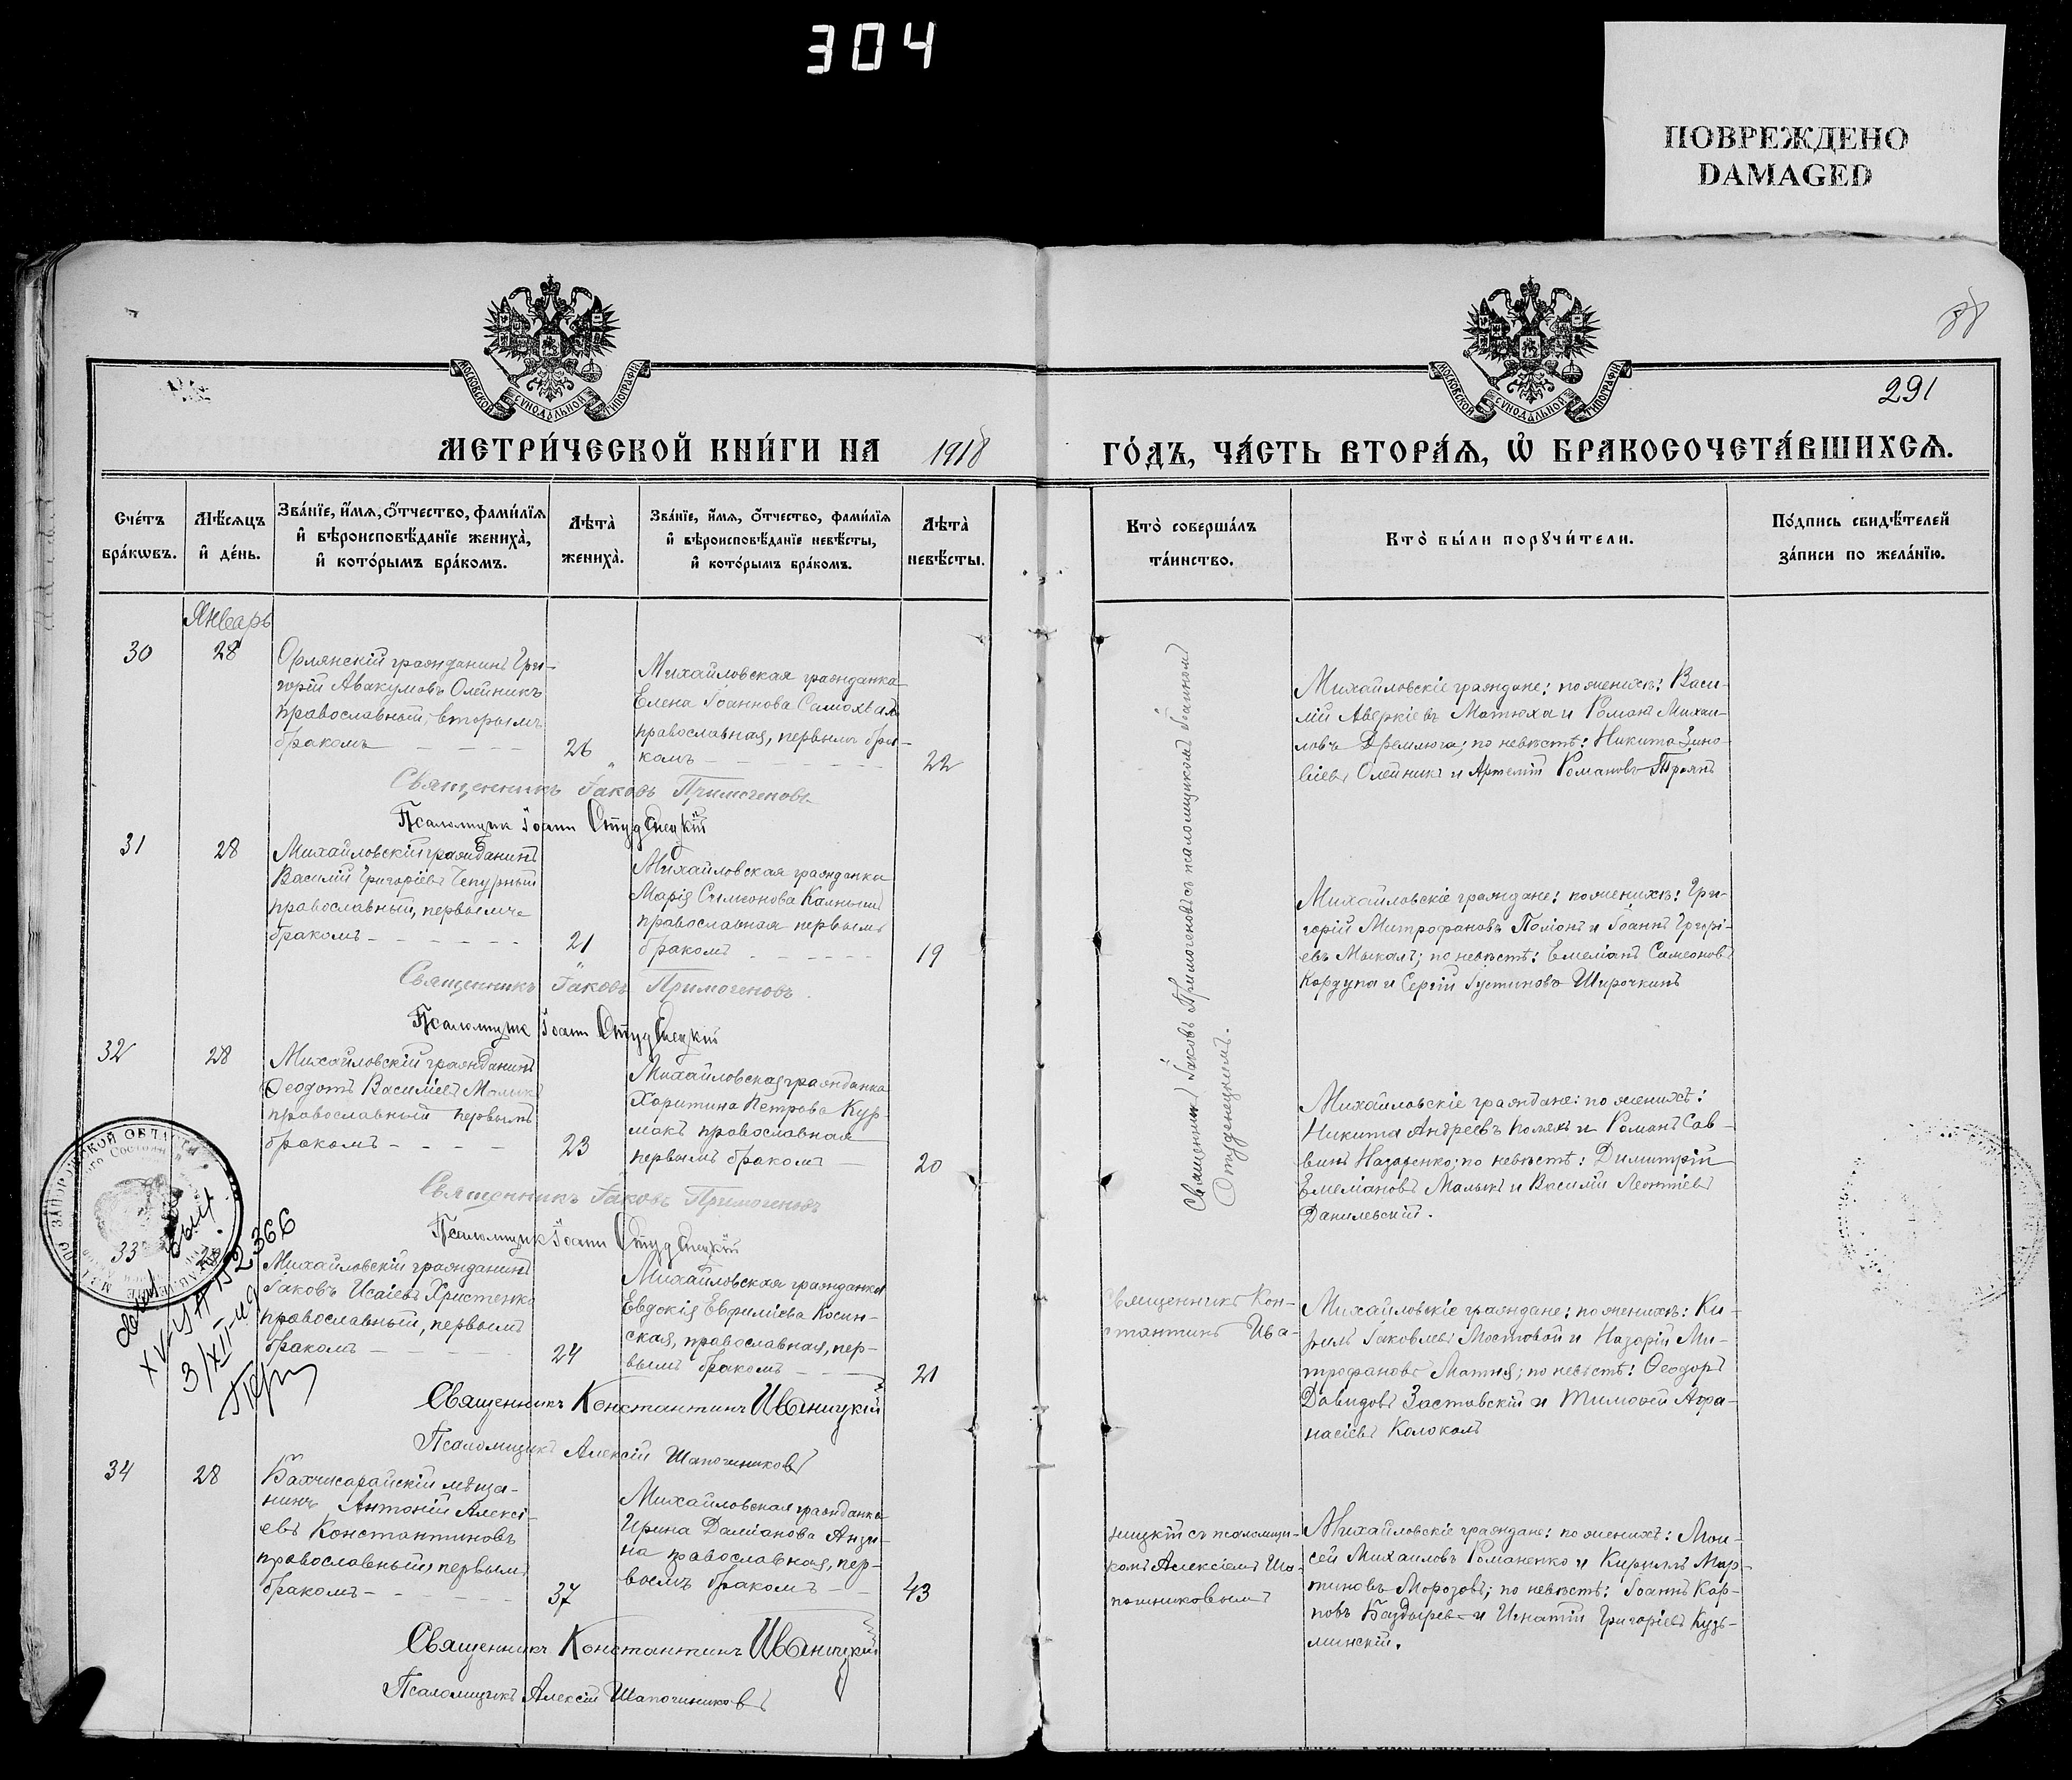 304
ПОВРЕЖДЕНО
DAMAGED
291
МОСКОВСКОЙ СУНОДАЛЬНОЙ ТИПОГРАФІИ
МОСКОВСКОЙ СУНОДАЛЬНОЙ ТИПОГРАФІИ
МЕТРИ́ЧЕСКОЙ КНИ́ГИ НА 1918 ГО́ДЪ, ЧА́СТЬ ВТОРА́Ѧ, Ѽ БРАКОСОЧЕТА́ВШИХСѦ.
Сче́тъ
бра́кωвъ.
Мѣ́сѧцъ
и҆ де́нь.
Зва́нїе, и҆́мѧ, ѻ҆́тчество, фами́лїѧ
и҆ вѣроисповѣ́данїе жениха̀,
и҆ кото́рымъ бра́комъ.
Лѣта̀
жениха̀.
Зва́нїе, и҆́мѧ, ѻ҆́тчество, фами́лїѧ
и҆ вѣроисповѣ́данїе невѣ́сты,
и҆ кото́рымъ бра́комъ.
Лѣта̀
невѣ́сты.
Кто̀ соверша́лъ
та́инство.
Кто̀ бы́ли порꙋчи́тели.
По́дпись свидѣ́телей
за́писи по жела́нїю.
Январь
30
28
Орлянскій гражданинъ Гри-
горій Авакумовъ Олейникъ
православный, вторымъ
бракомъ
26
Михайловская гражданка
Елена Іоаннова Самохвалъ
православная, первымъ бра-
комъ
22
Михайловскіе граждане: по женихѣ: Васи-
лій Аверкіевъ Матюха и Романъ Михаи-
ловъ Дремлюга; по невѣстѣ: Никита Зино-
віевъ Олейникъ и Артемій Романовъ Троянъ
Священникъ Іаковъ Примогеновъ
Псаломщик Іоанн Студенецкій
31
28
Михайловскій гражданинъ
Василій Григоріевъ Чепурный
православный, первымъ
бракомъ
21
Михайловская гражданка
Марія Симеонова Калныш
православная первымъ
бракомъ
19
Михайловскіе граждане: по женихѣ: Гри-
горій Митрофановъ Поліонъ и Іоаннъ Григорі-
евъ Мыкалъ; по невѣстѣ: Емеліанъ Симеоновъ
Кардупа и Сергій Іустиновъ Широчкинъ
Священникъ Іаковъ Примогеновъ.
Псаломщик Іоанн Студенецкій
Священникъ Іаковъ Примогеновъ съ псаломщикомъ Іоанномъ
Студенецкимъ.
32
28
Михайловскій гражданинъ
Ѳеодотъ Василіевъ Малыкъ
православный первымъ
бракомъ
23
Михайловская гражданка
Харитина Петрова Кур-
макъ православная
первымъ бракомъ
20
Михайловскіе граждане: по женихѣ:
Никита Андреевъ и Романъ Сав-
винъ Назаренко; по невѣстѣ: Димитрій
Емеліановъ Малыкъ и Василій Леонтіевъ
Данилевскій.
Священникъ Іаковъ Примогеновъ
Псаломщикъ Іоанн Студенецкій
33
28
Михайловскій гражданинъ
Іаковъ Исаіевъ Христенко
православный, первымъ
бракомъ
24
Михайловская гражданка
Евдокія Евфиміева Косин-
ская, православная, пер-
вымъ бракомъ
21
Священникъ Кон-
стантинъ Ива-
Михайловскіе граждане: по женихѣ: Ки-
рилъ Іаковлевъ Мостовой и Назарій Ми-
трофановъ Матня; по невѣстѣ: Ѳеодоръ
Давидовъ Заставскій и Тимоѳей Аѳа-
насіевъ Колоколъ
3/XII-
Священникъ Константинъ Иваницкій
Псаломщикъ Алексій Шапошниковъ
34
28
Бахчисарайскій мѣща-
нинъ Антоній Алексі-
евъ Константиновъ
православный, первымъ
бракомъ
37
Михайловская гражданка
Ирина Даміанова
православная, пер-
вымъ бракомъ
43
ницкій съ псаломщи-
комъ Алексіемъ Ша-
пошниковымъ
Михайловскіе граждане: по женихѣ: Мои-
сей Михаиловъ Романенко и Кириллъ Мар-
тиновъ Морозовъ; по невѣстѣ: Іоаннъ Кар-
повъ Баздыревъ и Игнатій Григоріевъ Кузь-
минскій.
Священникъ Константинъ Иваницкій
Псаломщикъ Алексій Шапошниковъ